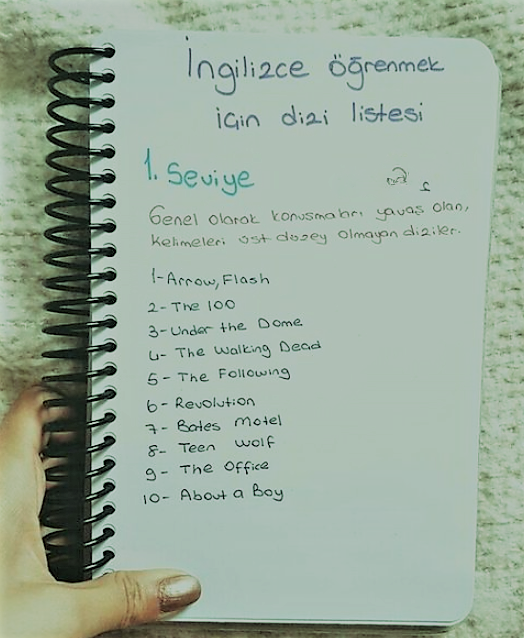 İngilizce öğrenmek
için dizi listesi
1. Seviye
Genel olarak konuşmaları yavaş olan,
kelimeleri üst düzey olmayan diziler.
1-Arrow, Flash
2-The 100
3-Under the Dome
4- The Walking Dead
5- The Following
6- Revolution
7- Bates Motel
8- Teen Wolf
9- The Office
10- About a Boy